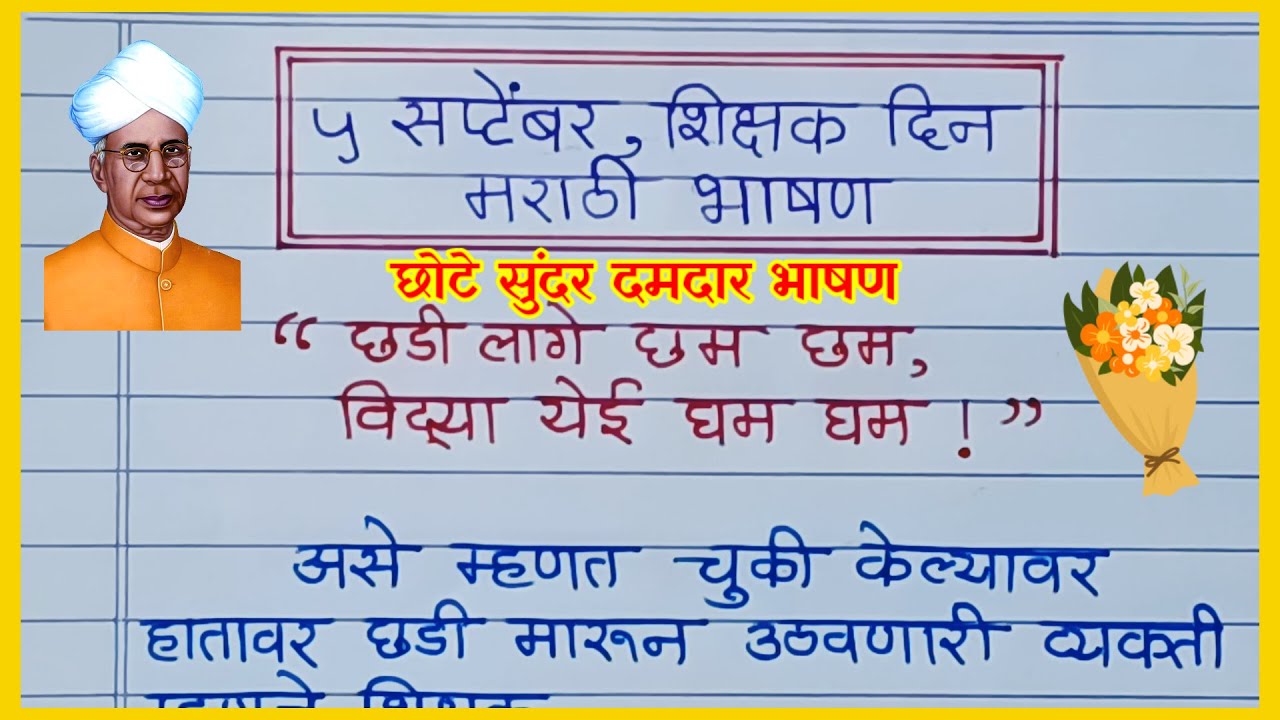 ५ सप्टेंबर, शिक्षक दिन
मराठी भाषण
छोटे सुंदर दमदार भाषण
“ छडी लागे छम छम,
विद्या येई घम घम ! ”
असे म्हणत चुकी केल्यावर
हातावर छडी मारून उठवणारी व्यक्ती